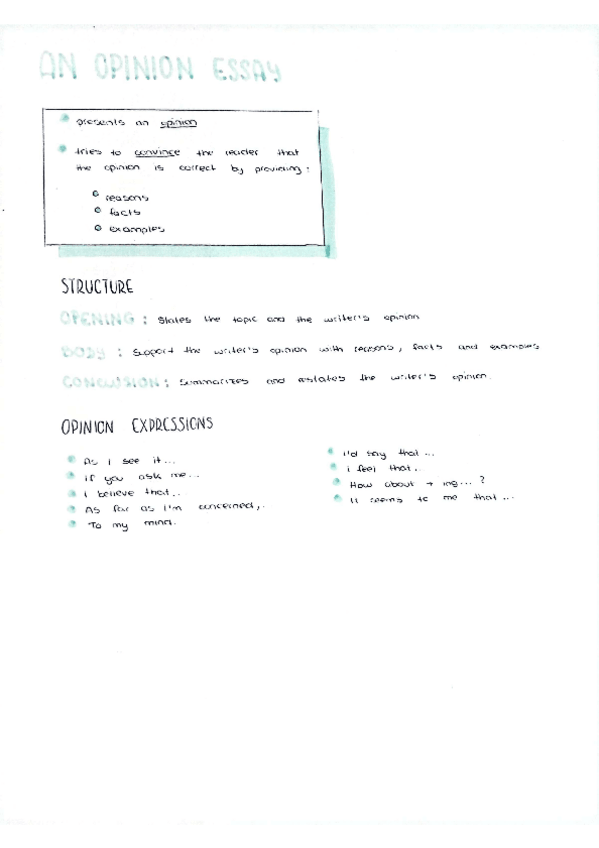 AN OPINION ESSAY
presents an opinion
tries to convince the reader that
the opinion is correct by providing:
reasons
facts
examples
STRUCTURE
OPENING: States the topic and the writer's opinion
BODY: Support the writer's opinion with reasons, facts and examples
CONCLUSION: Summarizes and restates the writer's opinion.
OPINION EXPRESSIONS
As I see it...
if you ask me...
I believe that...
As far as I'm concerned,.
To my mind.
I'd say that...
i feel that..
How about + ing...?
It seems to me that...